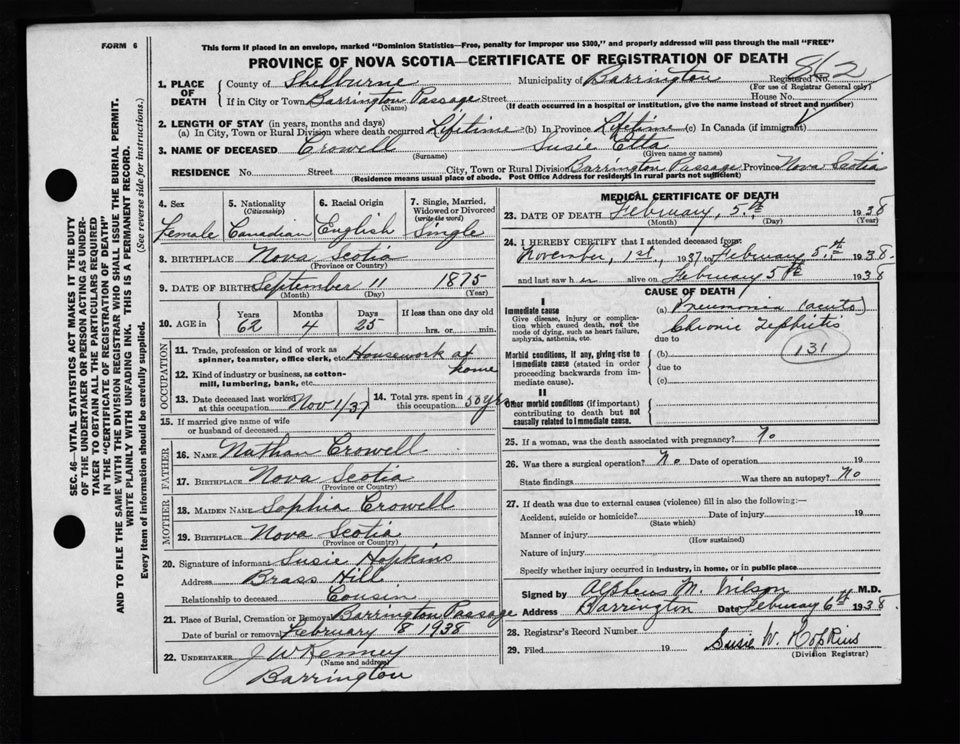 FORM 6
This form if placed in an envelope, marked "Dominion Statistics—Free, penalty for improper use $300," and properly addressed will pass through the mail "FREE"
PROVINCE OF NOVA SCOTIA—CERTIFICATE OF REGISTRATION OF DEATH
862
Registered No.
(For use of Registrar General only)
1. PLACE OF DEATH
County of Shelburne Municipality of Barrington
If in City or Town Barrington Passage Street House No.
(Name) (If death occurred in a hospital or institution, give the name instead of street and number)
2. LENGTH OF STAY (in years, months and days)
(a) In City, Town or Rural Division where death occurred Lifetime (b) In Province Lifetime (c) In Canada (if immigrant)
3. NAME OF DECEASED Crowell Susie Etta
(Surname) (Given name or names)
RESIDENCE No. Street City, Town or Rural Division Barrington Passage Province Nova Scotia
(Residence means usual place of abode. Post Office Address for residents in rural parts not sufficient)
SEC. 46—VITAL STATISTICS ACT MAKES IT THE DUTY
OF THE UNDERTAKER OR PERSON ACTING AS UNDER-
TAKER TO OBTAIN ALL THE PARTICULARS REQUIRED
IN THE "CERTIFICATE OF REGISTRATION OF DEATH"
AND TO FILE THE SAME WITH THE DIVISION REGISTRAR WHO SHALL ISSUE THE BURIAL PERMIT.
WRITE PLAINLY WITH UNFADING INK. THIS IS A PERMANENT RECORD.
Every item of information should be carefully supplied. (See reverse side for instructions.)
4. Sex 5. Nationality (Citizenship) 6. Racial Origin 7. Single, Married, Widowed or Divorced (write the word)
Female Canadian English Single
8. BIRTHPLACE Nova Scotia
(Province or Country)
9. DATE OF BIRTH September 11 1875
(Month) (Day) (Year)
10. AGE in Years Months Days If less than one day old
62 4 25 hrs. or min.
OCCUPATION
11. Trade, profession or kind of work as spinner, teamster, office clerk, etc. Housework at home
12. Kind of industry or business, as cotton-mill, lumbering, bank, etc.
13. Date deceased last worked at this occupation Nov 1/37 14. Total yrs. spent in this occupation 50 yrs
15. If married give name of wife or husband of deceased
FATHER
16. NAME Nathan Crowell
17. BIRTHPLACE Nova Scotia
(Province or Country)
MOTHER
18. MAIDEN NAME Sophia Crowell
19. BIRTHPLACE Nova Scotia
(Province or Country)
20. Signature of informant Susie Hopkins
Address Brass Hill
Relationship to deceased Cousin
21. Place of Burial, Cremation or Removal Barrington Passage
Date of burial or removal February 8 1938
22. UNDERTAKER J W Kenney
(Name and address)
Barrington
MEDICAL CERTIFICATE OF DEATH
23. DATE OF DEATH February, 5th, 1938
(Month) (Day) (Year)
24. I HEREBY CERTIFY that I attended deceased from:
November, 1st., 1937 to February 5th 1938
and last saw her alive on February 5th 1938
CAUSE OF DEATH
I
Immediate cause
Give disease, injury or complication which caused death, not the mode of dying, such as heart failure, asphyxia, asthenia, etc.
(a) Pneumonia (acute)
Chronic Nephritis
due to
131
Morbid conditions, if any, giving rise to immediate cause (stated in order proceeding backwards from immediate cause).
(b)
due to
(c)
II
Other morbid conditions (if important) contributing to death but not causally related to immediate cause.
25. If a woman, was the death associated with pregnancy? No
26. Was there a surgical operation? No Date of operation 19
State findings Was there an autopsy? No
27. If death was due to external causes (violence) fill in also the following:—
Accident, suicide or homicide? Date of injury 19
(State which)
Manner of injury
(How sustained)
Nature of injury
Specify whether injury occurred in industry, in home, or in public place
Signed by Alpheus M. Wilson M.D.
Address Barrington Date February 6th 1938
28. Registrar's Record Number
29. Filed 19 Susie W. Hopkins
(Division Registrar)